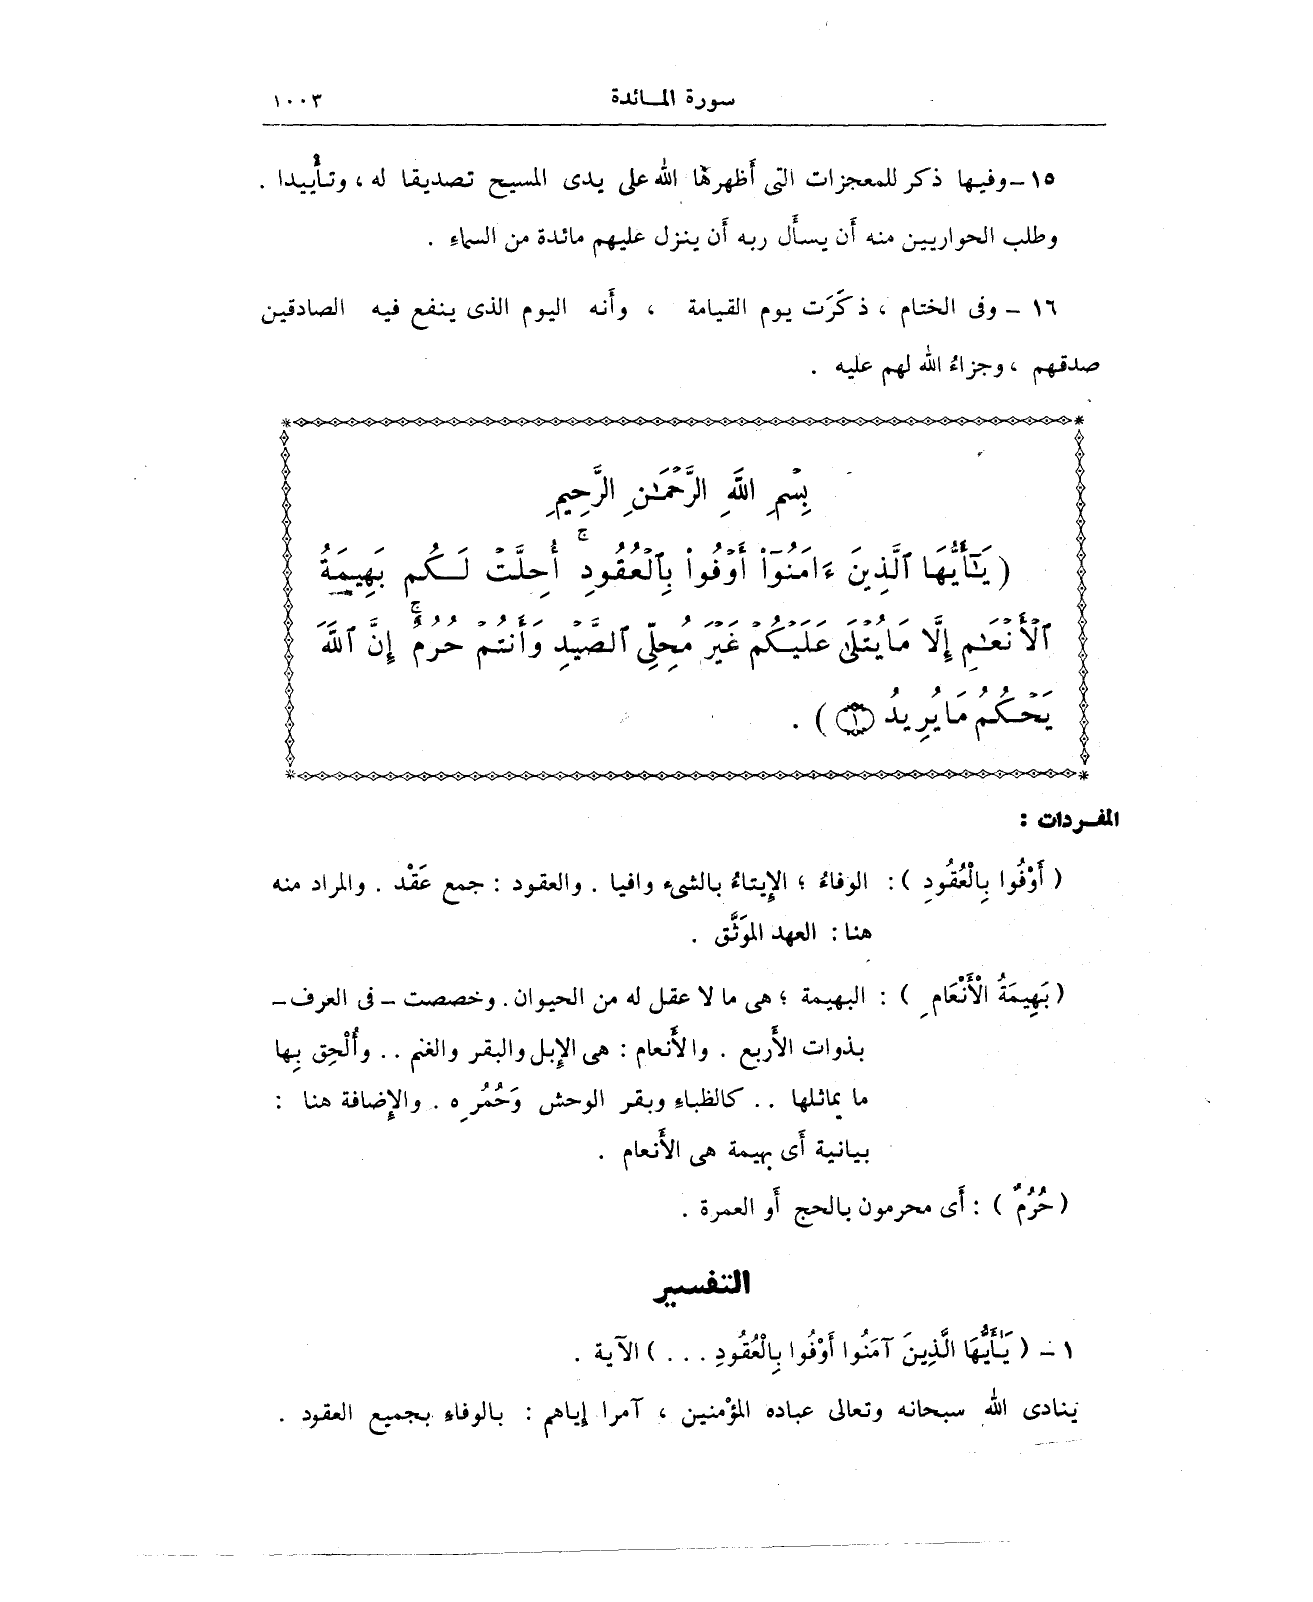 سورة المائدة ١٠٠٣
١٥ – وفيها ذكر للمعجزات التى أظهرها الله على يدى المسيح تصديقا له ، وتأييدا .
وطلب الحواريين منه أن يسأل ربه أن ينزل عليهم مائدة من السماء .
١٦ – وفى الختام ، ذكَّرَت يوم القيامة ، وأنه اليوم الذى ينفع فيه الصادقين
صدقهم ، وجزاءُ الله لهم عليه .
بِسْمِ اللَّهِ الرَّحْمَٰنِ الرَّحِيمِ
( يَٰٓأَيُّهَا ٱلَّذِينَ ءَامَنُوٓا۟ أَوْفُوا۟ بِٱلْعُقُودِ ۚ أُحِلَّتْ لَكُم بَهِيمَةُ
ٱلْأَنْعَٰمِ إِلَّا مَا يُتْلَىٰ عَلَيْكُمْ غَيْرَ مُحِلِّى ٱلصَّيْدِ وَأَنتُمْ حُرُمٌ ۚ إِنَّ ٱللَّهَ
يَحْكُمُ مَا يُرِيدُ ١ ) .
المفردات :
( أَوْفُوا بِالْعُقُودِ ) : الوفاءُ ؛ الإِيتاءُ بالشىء وافيا . والعقود : جمع عَقْد . والمراد منه
هنا : العهد الموَثَّق .
( بَهِيمَةُ الْأَنْعَامِ ) : البهيمة ؛ هى ما لا عقل له من الحيوان . وخصصت – فى العرف –
بذوات الأَربع . والأَنعام : هى الإِبل والبقر والغنم . . وأُلْحِق بِها
ما يماثلها . . كالظباء وبقر الوحش وَحُمُرِه . والإِضافة هنا :
بيانية أَى بهيمة هى الأَنعام .
( حُرُمٌ ) : أَى محرمون بالحج أَو العمرة .
التفسير
١ – ( يَٰأَيُّهَا الَّذِينَ آمَنُوا أَوْفُوا بِالْعُقُودِ . . . ) الآية .
ينادى الله سبحانه وتعالى عباده المؤْمنين ، آمرا إِياهم : بالوفاءِ بجميع العقود .